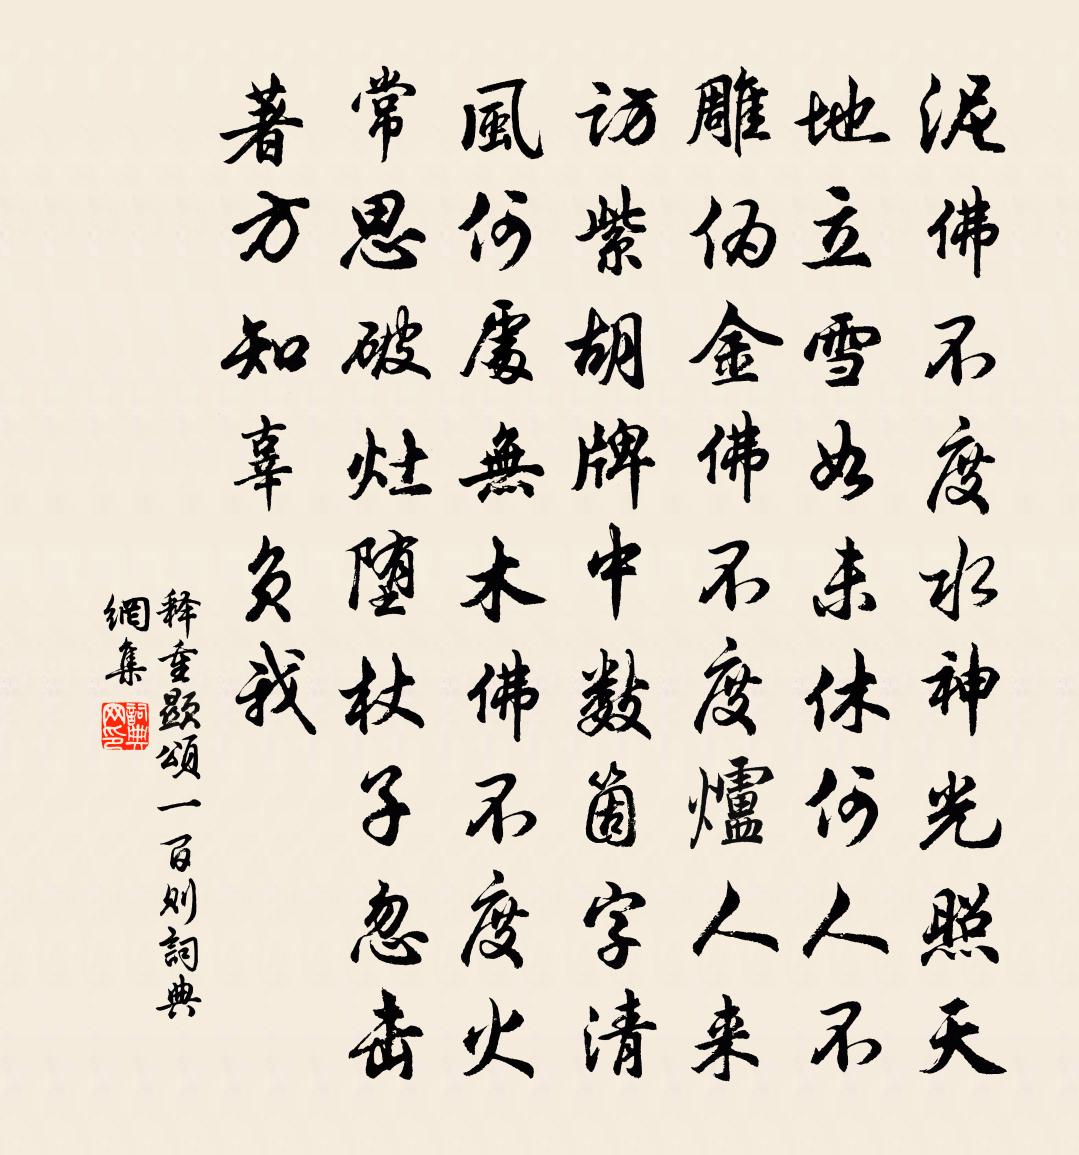 泥佛不度水神光照天
地立雪如未休何人不
雕伪金佛不度爐人来
訪紫胡牌中数箇字清
風何處無木佛不度火
常思破灶堕杖子忽击
著方知辜负我
释重顯頌一百则詞典
網集
詞典网印